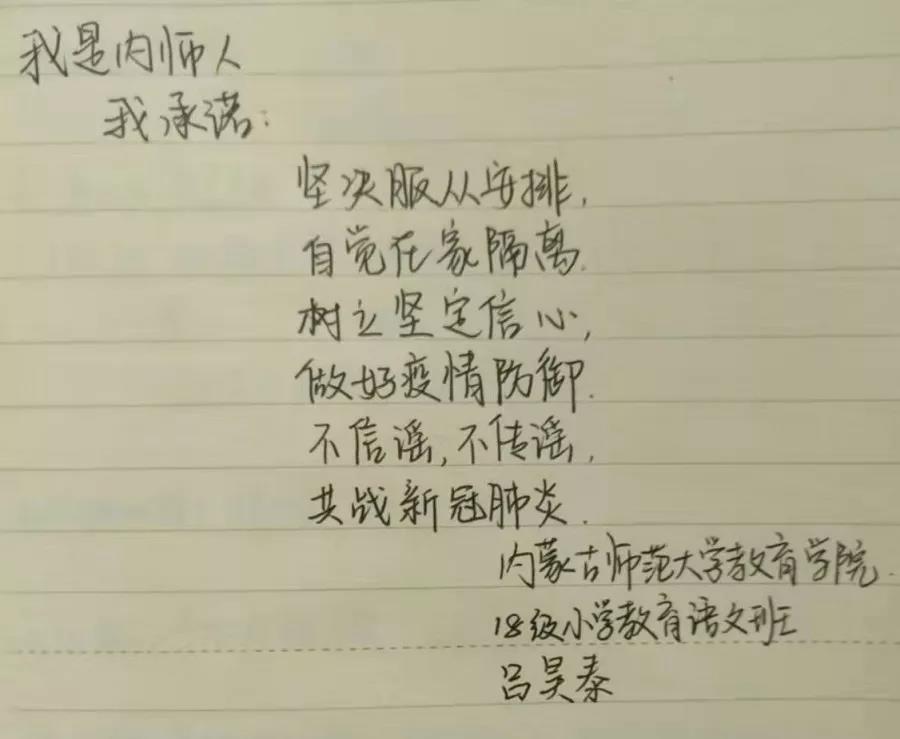 我是内师人
我承诺:
坚决服从安排,
自觉在家隔离.
树立坚定信心,
做好疫情防御.
不信谣,不传谣,
共战新冠肺炎.
内蒙古师范大学教育学院.
18级小学教育语文班
吕昊泰